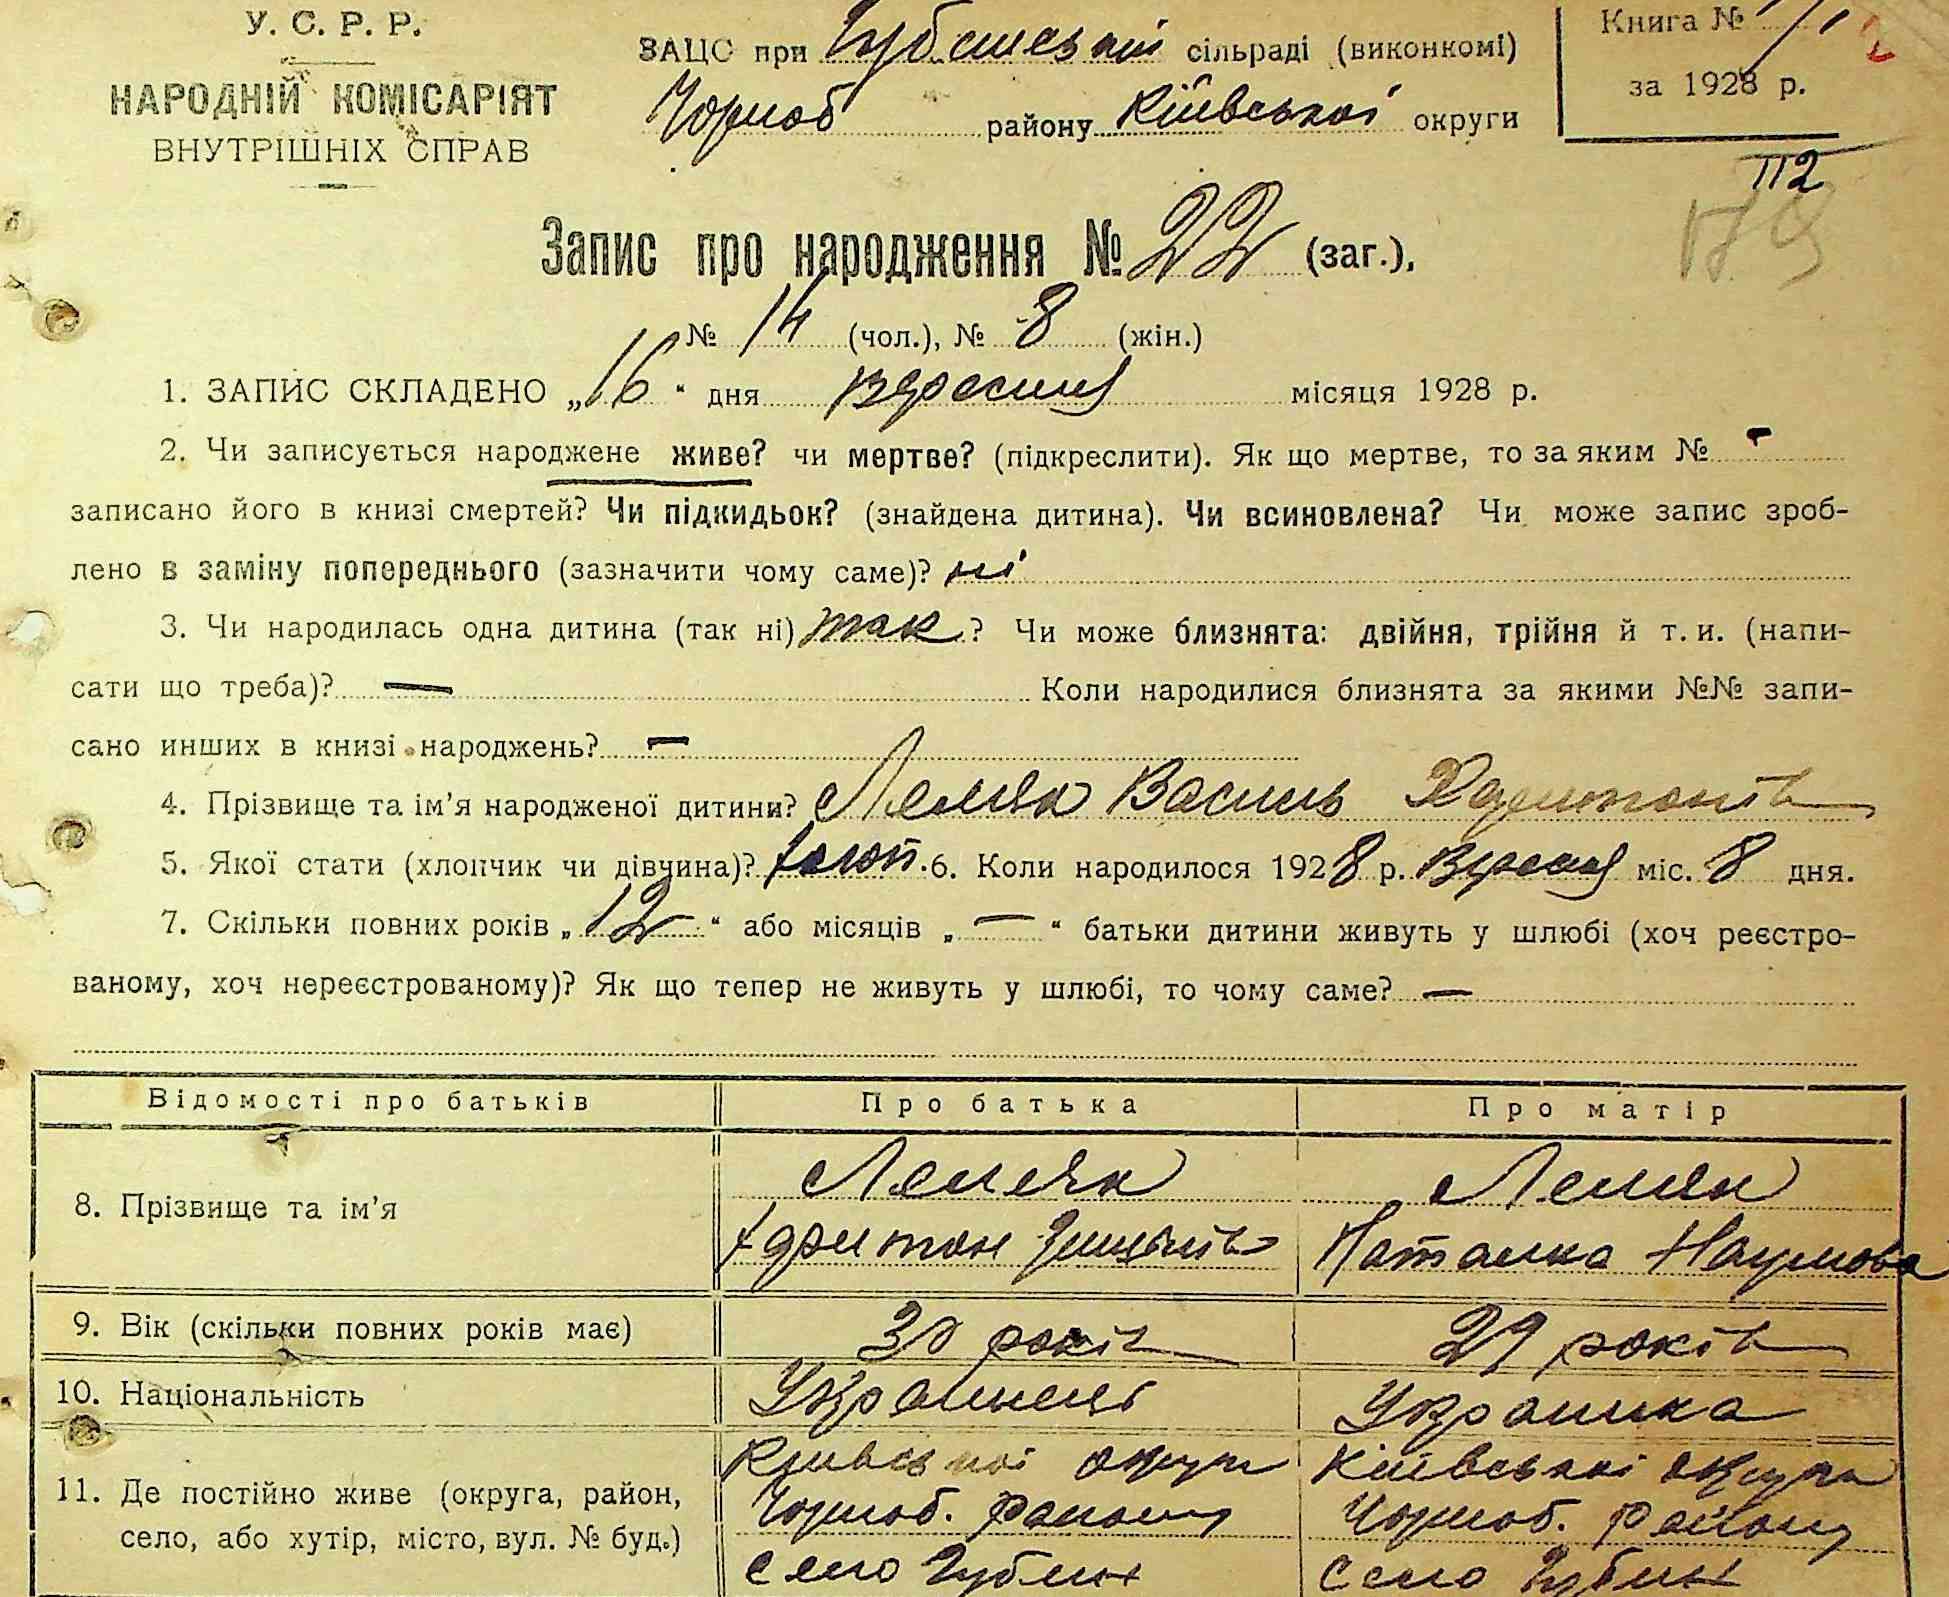 У. С. Р. Р.
НАРОДНІЙ КОМІСАРІЯТ
ВНУТРІШНІХ СПРАВ
ЗАЦС при сільраді (виконкомі)
Чорноб району Київської округи
Книга №
за 1928 р.
112
Запис про народження № 22 (заг.),
№ 14 (чол.), № 8 (жін.)
1. ЗАПИС СКЛАДЕНО „16“ дня Вересня місяця 1928 р.
2. Чи записується народжене живе? чи мертве? (підкреслити). Як що мертве, то за яким № -
записано його в книзі смертей? Чи підкидьок? (знайдена дитина). Чи всиновлена? Чи може запис зроб-
лено в заміну попереднього (зазначити чому саме)? ні
3. Чи народилась одна дитина (так ні) так? Чи може близнята: двійня, трійня й т. и. (напи-
сати що треба)? — Коли народилися близнята за якими №№ запи-
сано инших в книзі народжень? —
4. Прізвище та ім'я народженої дитини? Лемяк Василь Харитонів
5. Якої стати (хлопчик чи дівчина)? хлоп. 6. Коли народилося 1928 р. Вересня міс. 8 дня.
7. Скільки повних років „12“ або місяців „—“ батьки дитини живуть у шлюбі (хоч реєстро-
ваному, хоч нереєстрованому)? Як що тепер не живуть у шлюбі, то чому саме? —
Відомості про батьків Про батька Про матір
8. Прізвище та ім'я
Лемяк Лемяк
Харитон Наталка Наумова
9. Вік (скільки повних років має) 30 років 29 років
10. Національність Українець Українка
11. Де постійно живе (округа, район,
село, або хутір, місто, вул. № буд.)
Київської округи Київської округи
Чорноб. району Чорноб. району
село Губин село Губин